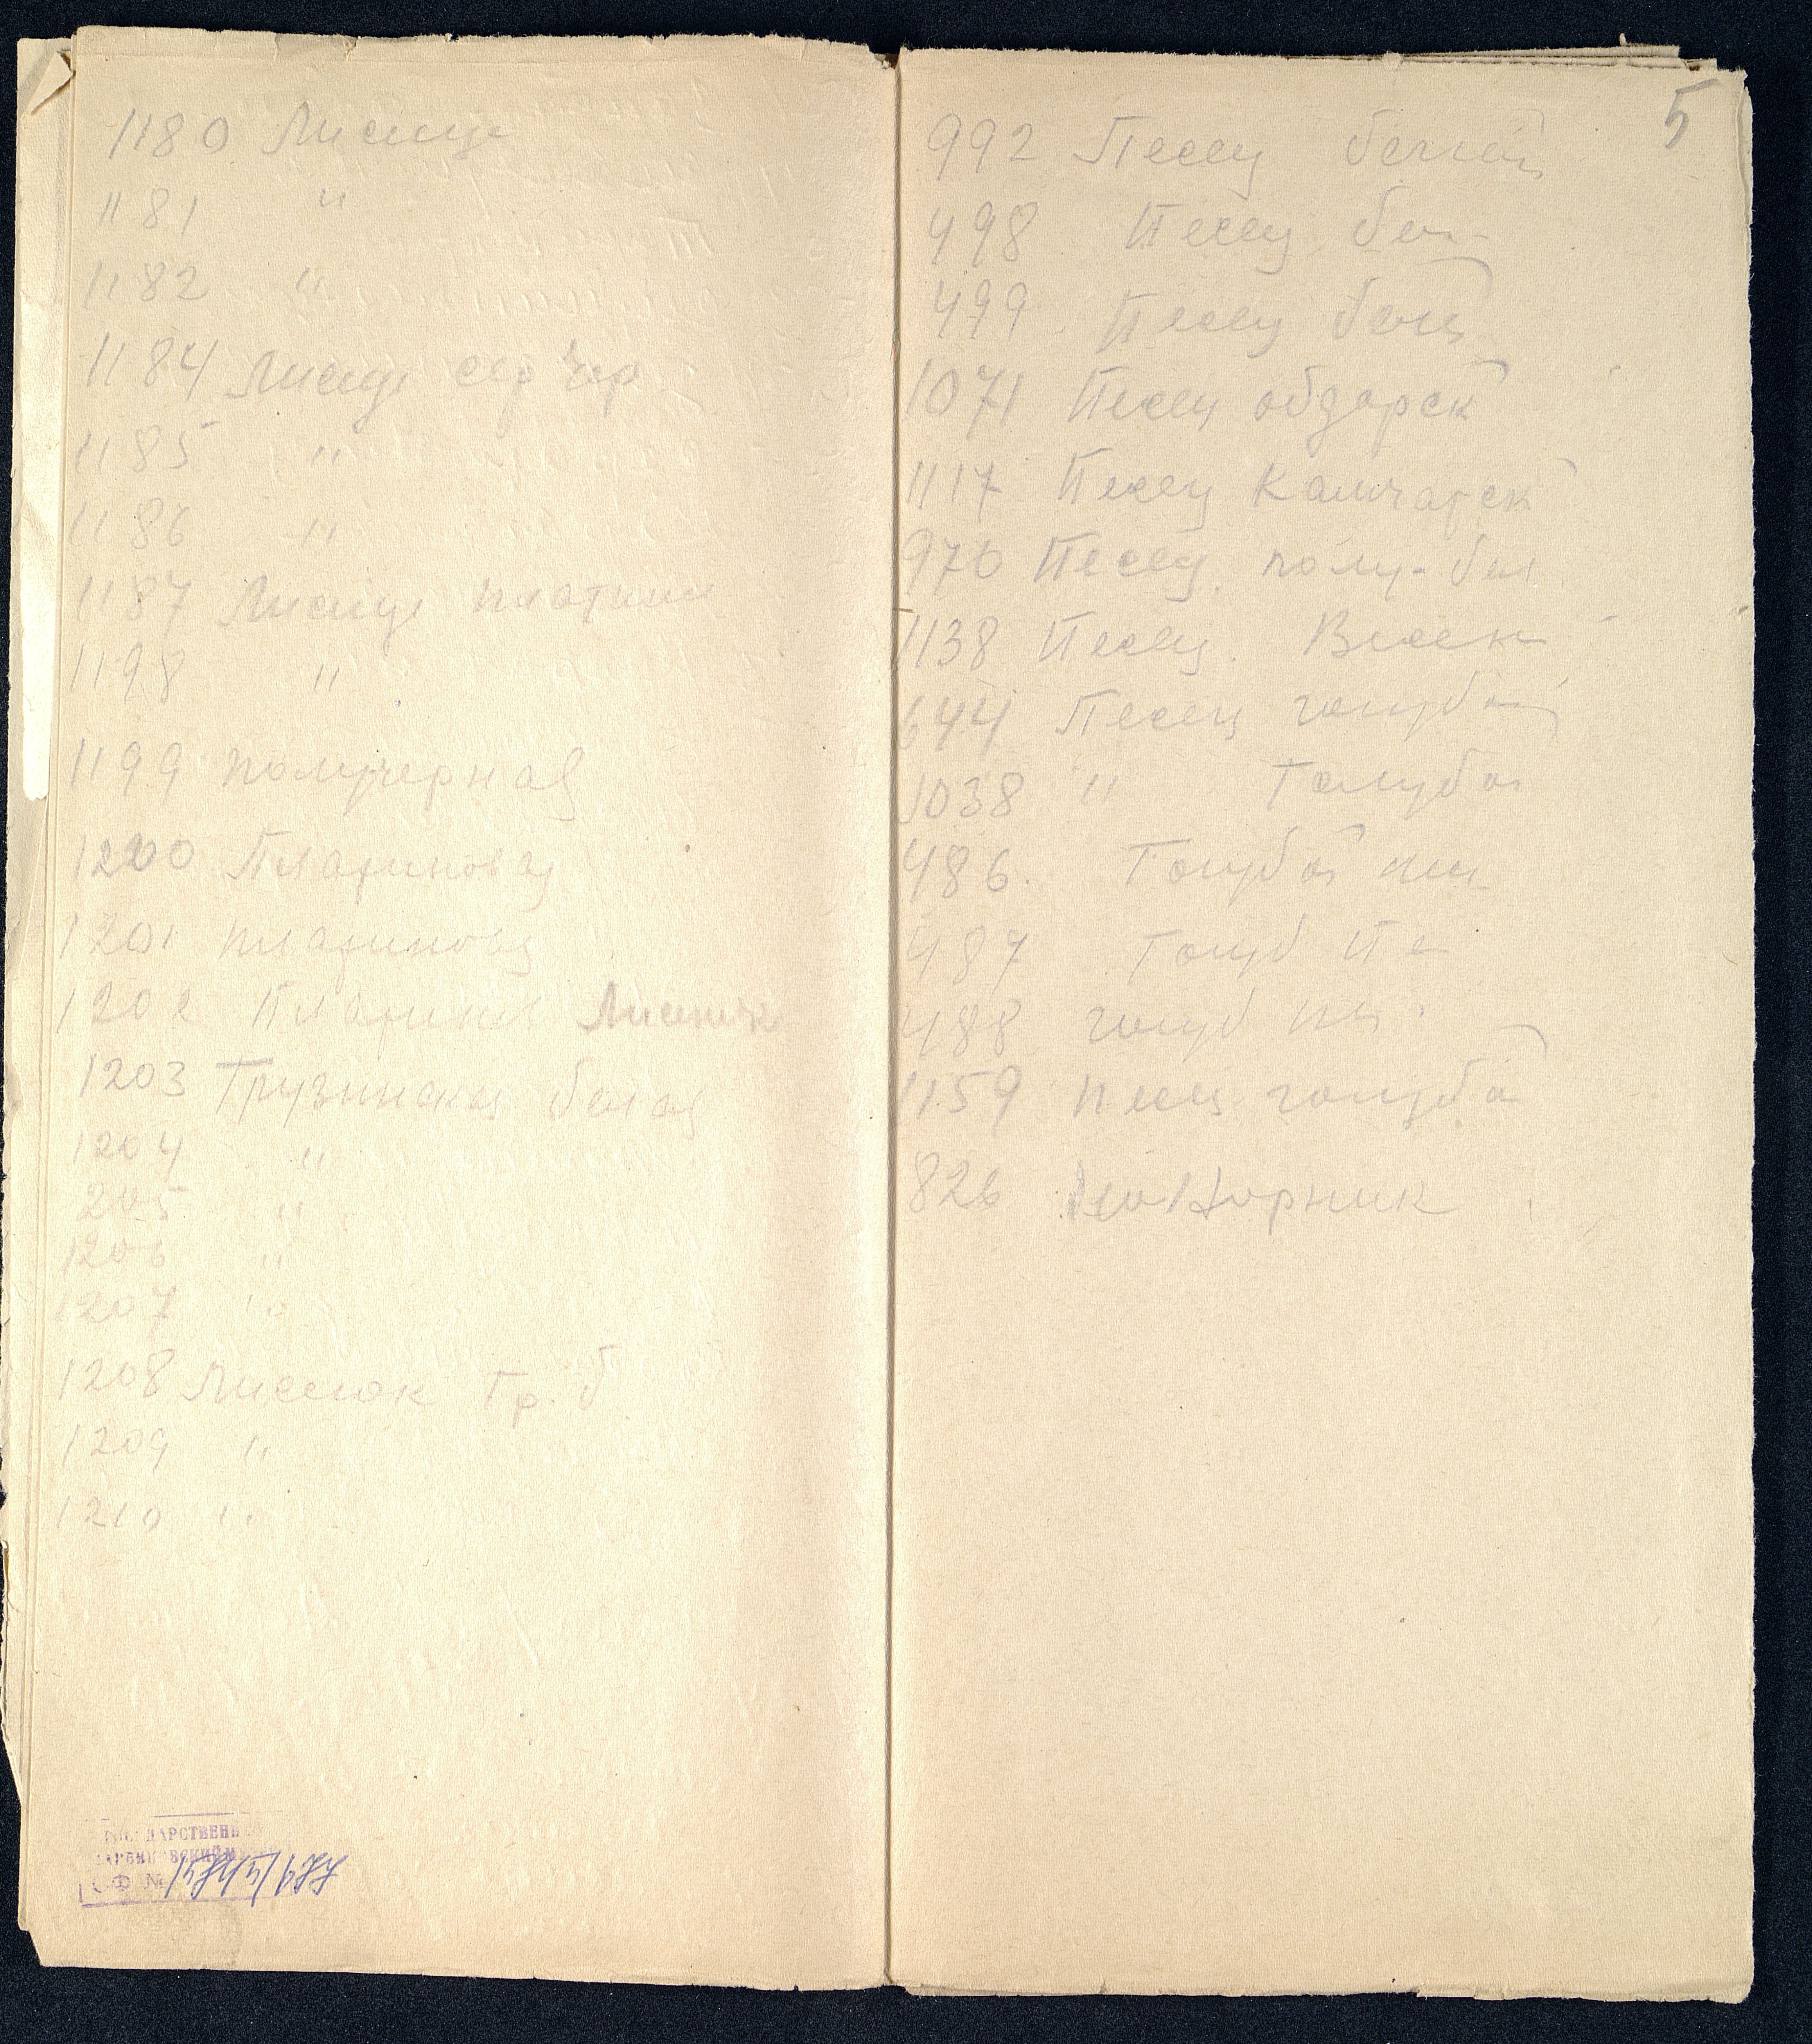 1180 Лисица
1181 "
1182 "
1184 Лисица сер чер
1185 "
1186 "
1187 Лисица платин
1198 "
1199 получерная
1200 Платиновая
1201 платиновая
1202 Платинов Лисенок
1203 Грузинская белая
1204 "
205 "
1206 "
1207 "
1208 Лисенок Гр. б
1209 "
1210 "
ГОСУДАРСТВЕНН
ДАРВИНОВСКИЙ М
Ф №
5
992 Песец белый
498 Песец бел
499 Песец белый
1071 Песец обдорск
1117 Песец Камчатск
976 Песец полу-бел
1138 Песец
644 Песец голубой
1038 " Голубой
486. Голубой пес
487 Голуб Пе
488 голуб пес
1159 песец голубой
826 Не Норник